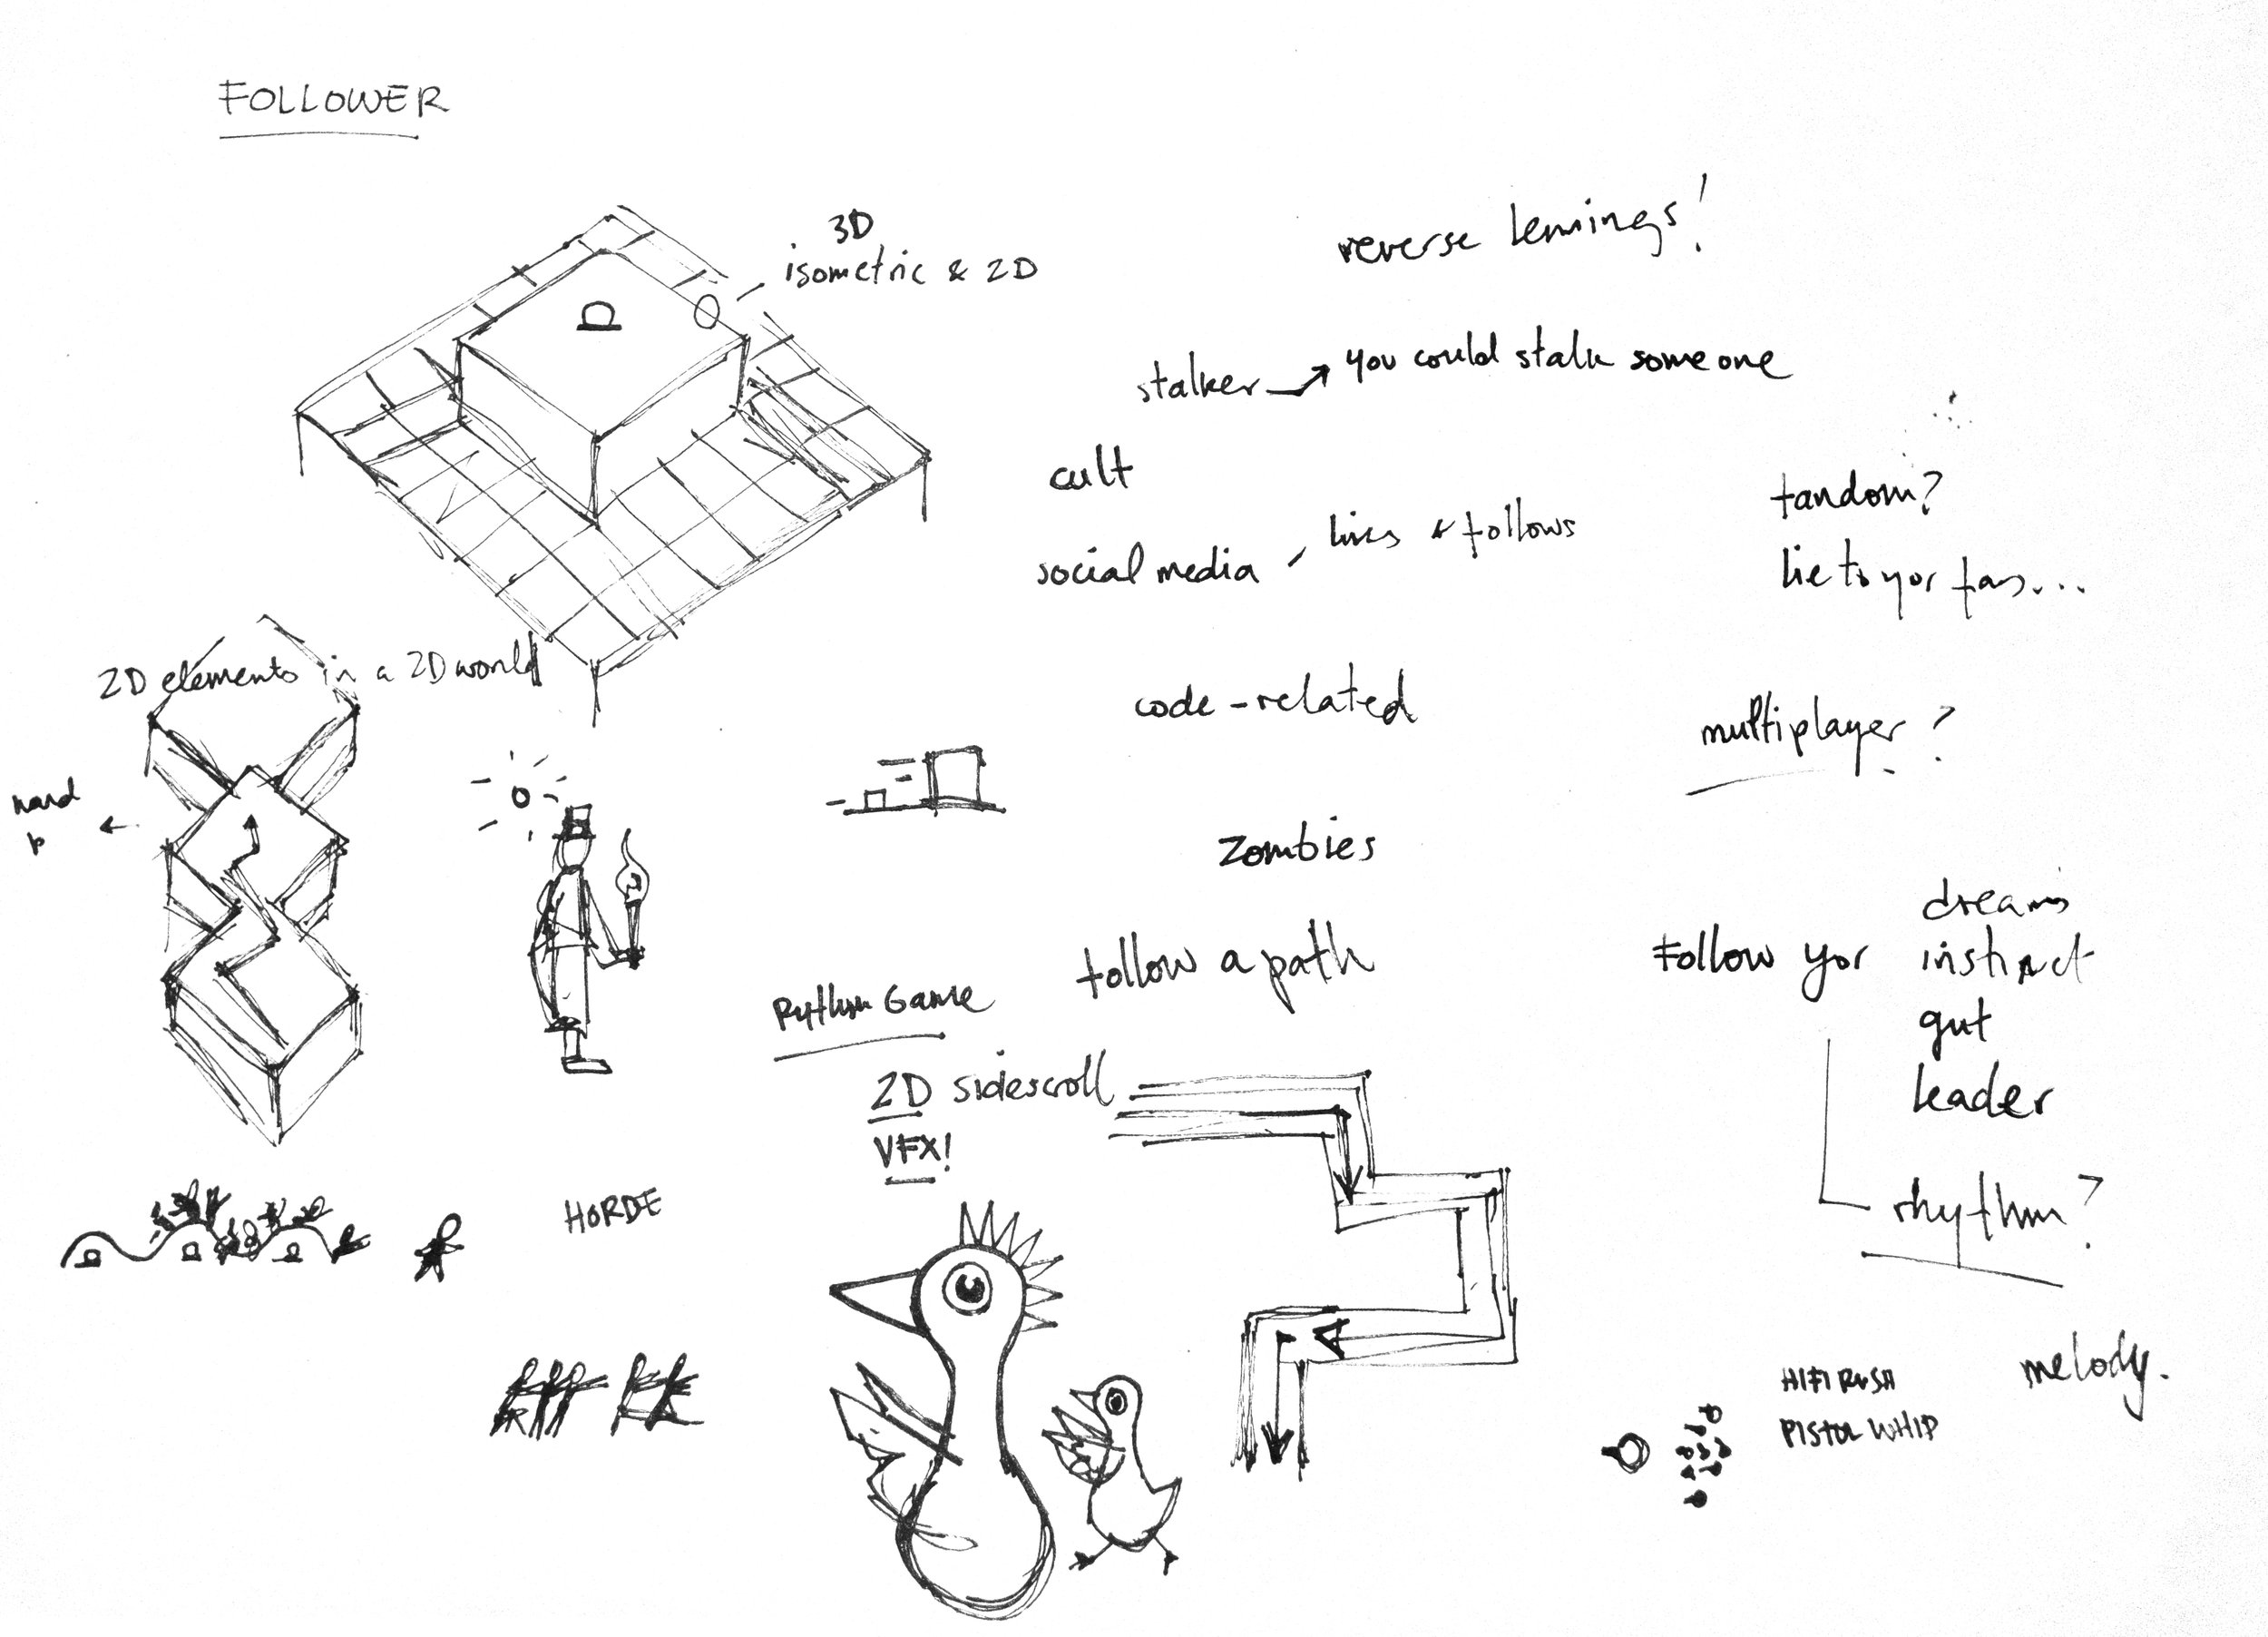 FOLLOWER
3D
isometric & 2D
reverse Lemings!
stalker → you could stalk someone
cult
social media
& follows
tandom?
lie to yor fans...
2D elements in a 2D world
code-related
multiplayer?
Zombies
Rythm Game
follow a path
Follow yor
dreams
instinct
gut
leader
2D sidescroll
VFX!
HORDE
rhythm?
melody.
HIFI RUSH
PISTOL WHIP